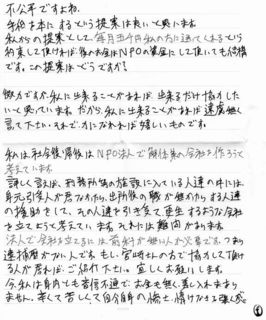 不公平ですよね。
年俸千本にするという提案は良いと思います。
私からの提案として、毎月五千円私の方に送ってくるという
約束して頂ければ、後のお金はNPOの資金にして頂いても結構
です。この提案はどうですか?
微力ですが、私に出来ることがあれば、出来るだけ協力した
いと思っています。だから、私に出来ることがあれば遠慮無く
言って下さい。それで、力になれれば嬉しいものです。
私は、社会復帰後はNPO法人で 会社を作ろうと
考えています。
詳しく説れば、刑務所等の施設に入っている人達の中には
身元引受人が居ないから、出所後の職が無いから、する人達
の援助をして、その人達を引き受て、更生するような会社
を立てようと考えています。それには難問があります。
法人で会社を立てるには、前科が無い人が必要です。つまり
逮捕歴がない人です。もし、宮崎さんの方で協力して頂け
る人が居れば、ご紹介下さい。宜しくお願いします。
今私は身内とも音信不通で、お金も無く、差し入れもあり
ません。苦しくて苦しくて、自分自身の 情けなさを痛感